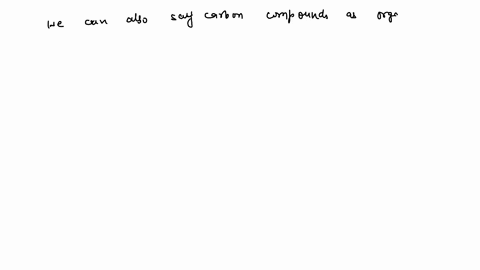 we can also say carbon compounds as orga